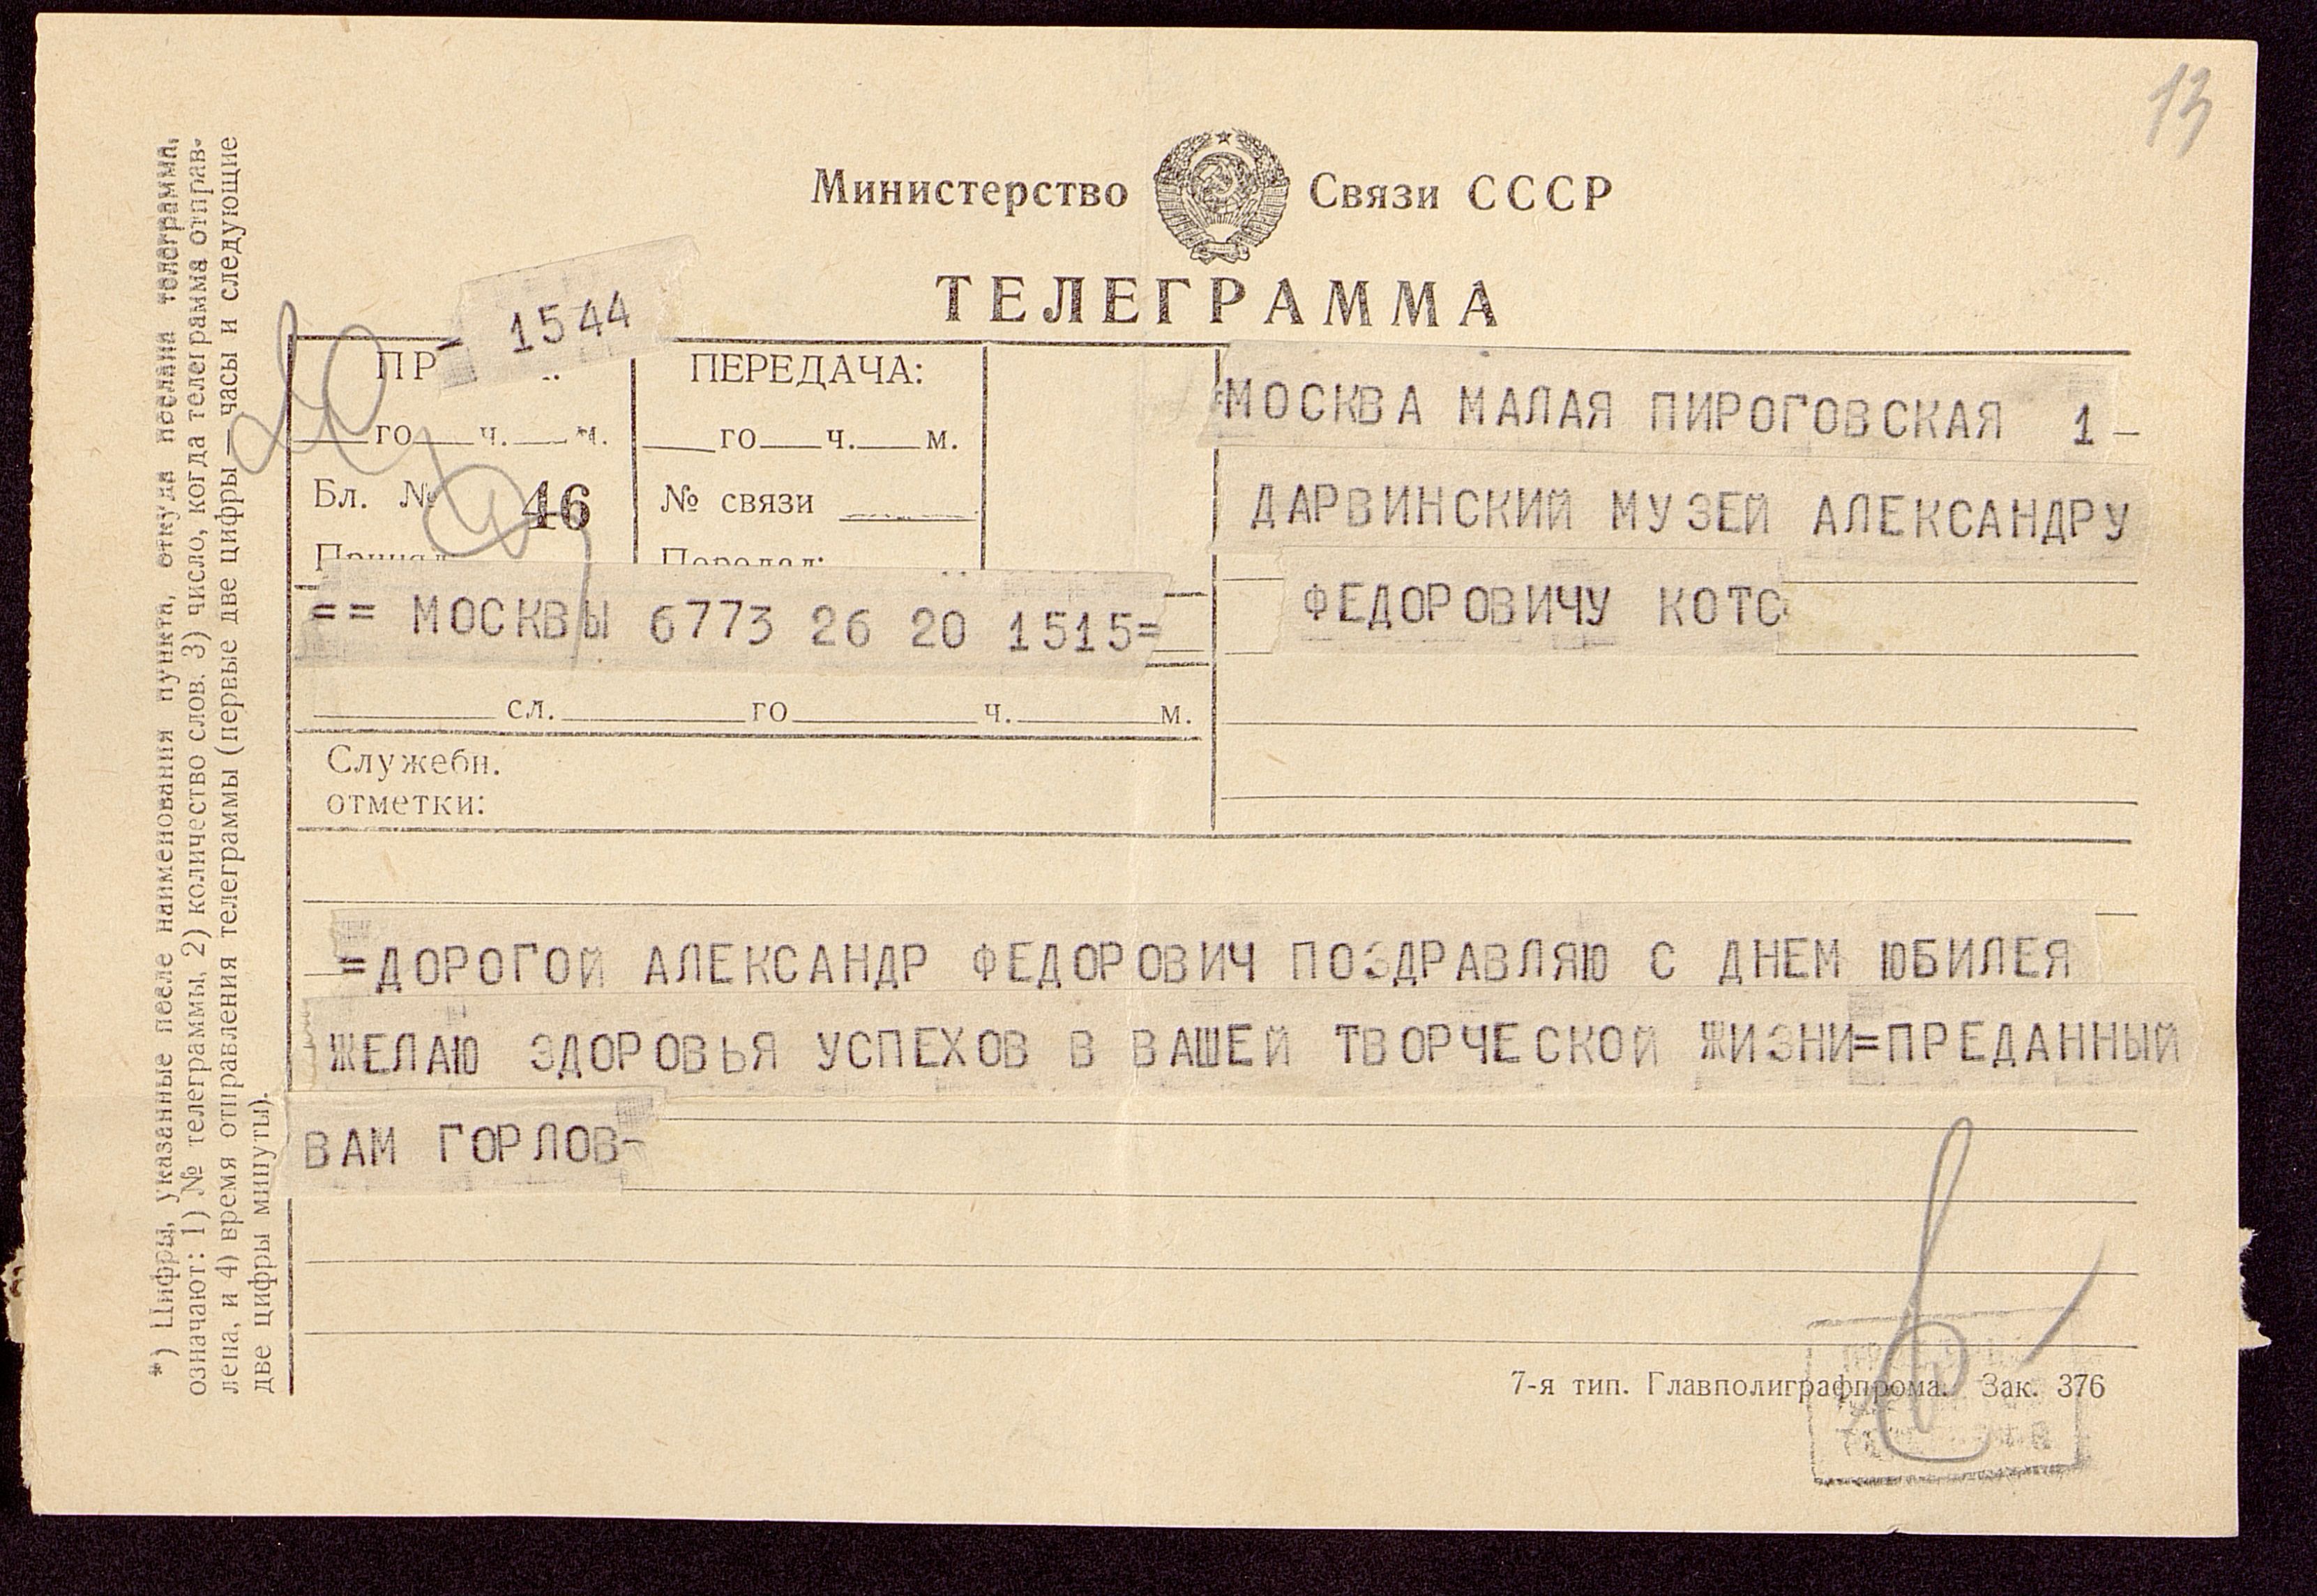 13
Министерство Связи СССР
ТЕЛЕГРАММА
- 1544
ПР
ПЕРЕДАЧА:
го ч. м.
го ч. м.
Бл. № 46
№ связи
Принял
Передал:
== МОСКВЫ 6773 26 20 1515=
сл. го ч. м.
Служебн.
отметки:
МОСКВА МАЛАЯ ПИРОГОВСКАЯ 1 -
ДАРВИНСКИЙ МУЗЕЙ АЛЕКСАНДРУ
ФЕДОРОВИЧУ КОТС
=ДОРОГОЙ АЛЕКСАНДР ФЕДОРОВИЧ ПОЗДРАВЛЯЮ С ДНЕМ ЮБИЛЕЯ
ЖЕЛАЮ ЗДОРОВЬЯ УСПЕХОВ В ВАШЕЙ ТВОРЧЕСКОЙ ЖИЗНИ=ПРЕДАННЫЙ
ВАМ ГОРЛОВ-
7-я тип. Главполиграфпрома. Зак. 376
*) Цифры, указанные после наименования пункта, откуда послана телеграмма,
означают: 1) № телеграммы, 2) количество слов. 3) число, когда телеграмма отправ-
лена, и 4) время отправления телеграммы (первые две цифры — часы и следующие
две цифры минуты).